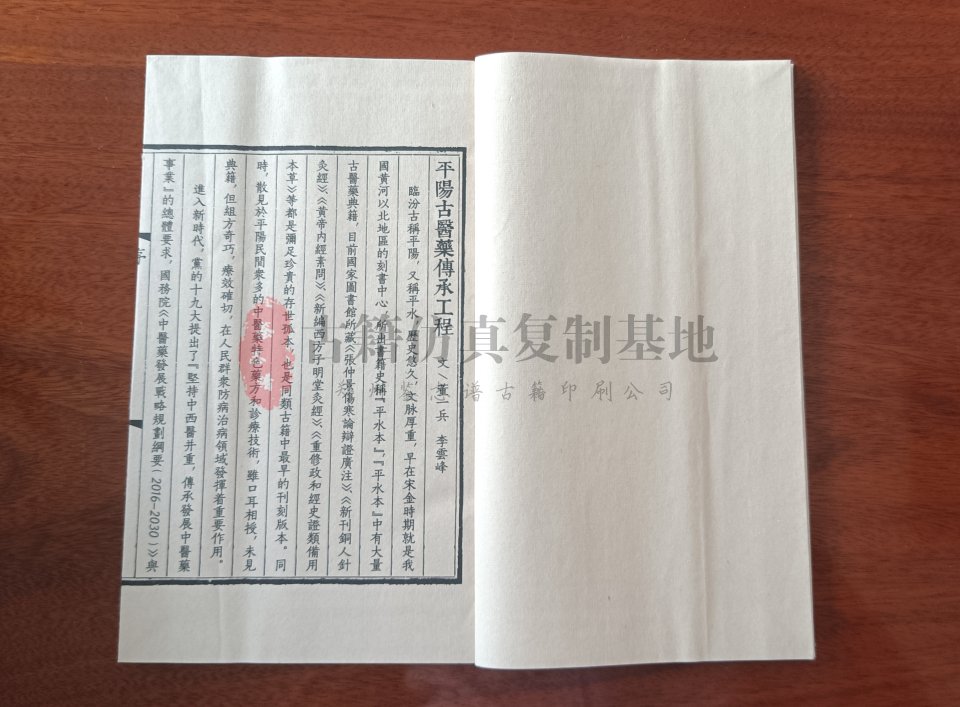 平陽古醫藥傳承工程
文\董一兵 李雲峰
臨汾古稱平陽，又稱平水，歷史悠久，文脉厚重，早在宋金時期就是我
國黄河以北地區的刻書中心，所出書籍史稱『平水本』，『平水本』中有大量
古醫藥典籍，目前國家圖書館所藏《張仲景傷寒論辯證廣注》、《新刊銅人針
灸經》、《黄帝内經素問》、《新編西方子明堂灸經》、《重修政和經史證類備用
本草》等都是彌足珍貴的存世孤本，也是同類古籍中最早的刊刻版本。同
時，散見於平陽民間衆多的中醫藥特色藥方和診療技術，雖口耳相授，未見
典籍，但組方奇巧，療效確切，在人民群衆防病治病領域發揮着重要作用。
進入新時代，黨的十九大提出了『堅持中西醫并重，傳承發展中醫藥
事業』的總體要求，國務院《中醫藥發展戰略規劃綱要（2016-2030）》與
古籍仿真复制基地
谱古籍印刷公司